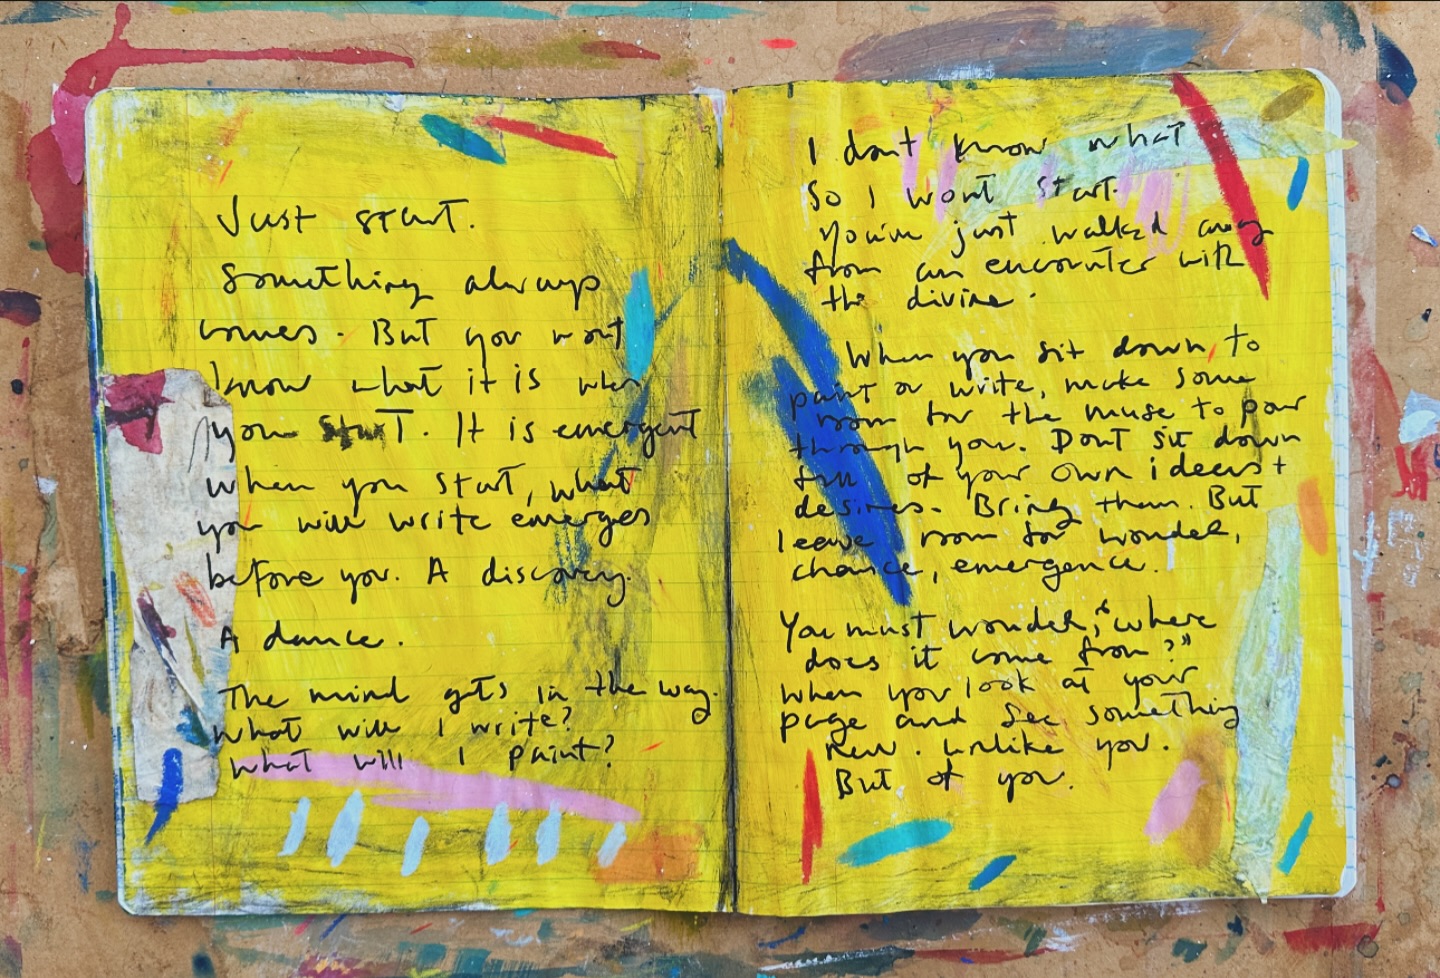 Just start.
Something always
comes. But you wont
know what it is when
you start. It is emergent
when you start, what
you will write emerges
before you. A discovery.
A dance.
The mind gets in the way.
What will I write?
What will I paint?
I dont know what
So I wont start.
You've just walked away
from an encounter with
the divine.
When you sit down to
paint or write, make some
room for the muse to pour
through you. Dont sit down
full of your own ideas +
desires. Bring them. But
leave room for wonder,
chance, emergence.
You must wonder, "where
does it come from?"
when you look at your
page and see something
new. unlike you.
But of you.